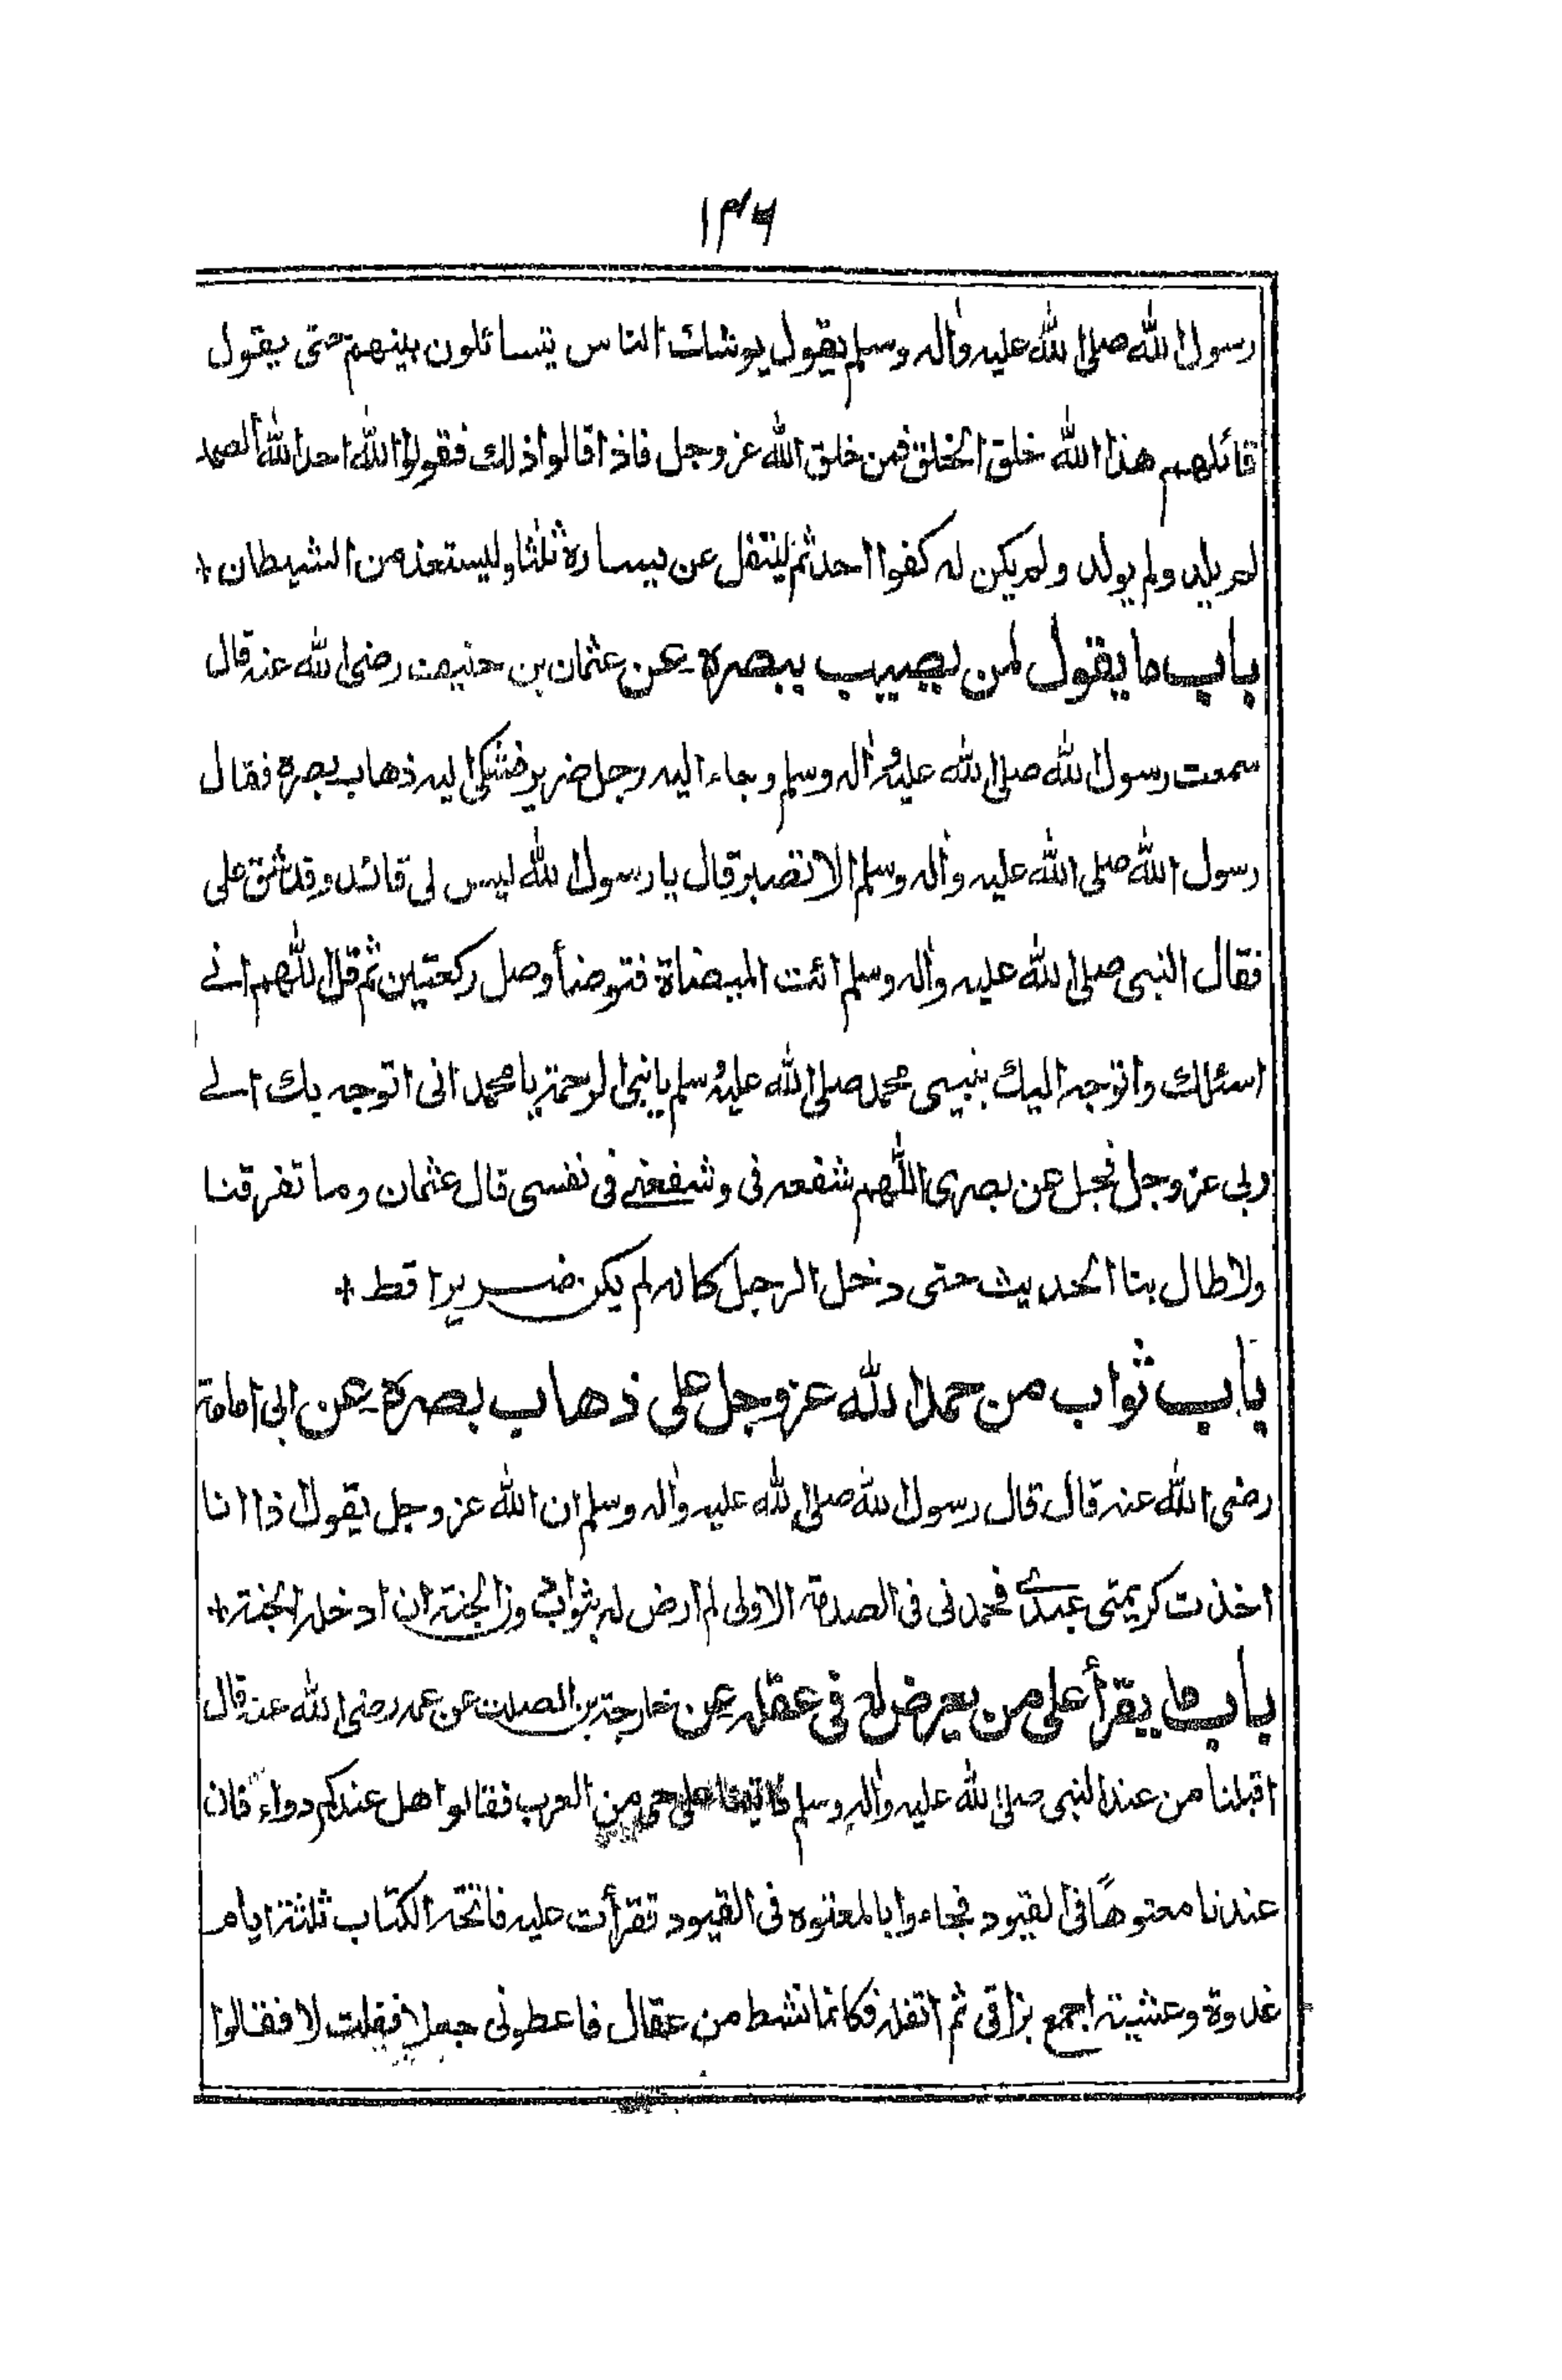 ١٣٦
رسول الله صلى الله عليه واله وسلم يقول يوشك الناس يتسائلون بينهم حتى يقول
قائلهم هذا الله خلق الخلق فمن خلق الله عز وجل فاذا قالوا ذلك فقولوا الله احد الله الصمد
لم يلد ولم يولد ولم يكن له كفوا احد ثم ليتفل عن يساره ثلثا وليستعذ من الشيطان +
باب ما يقول لمن يصيب ببصره عن عثمان بن حنيف رضى الله عنه قال
سمعت رسول الله صلى الله عليه واله وسلم وجاء اليه رجل ضرير فشكى اليه ذهاب بصره فقال
رسول الله صلى الله عليه واله وسلم الا تصبر قال يا رسول الله ليس لى قائد وقد شق على
فقال النبى صلى الله عليه واله وسلم ائت الميضاة فتوضأ وصل ركعتين ثم قل اللهم انى
اسئلك واتوجه اليك بنبيى محمد صلى الله عليه وسلم يا نبى الرحمة يا محمد انى اتوجه بك الى
ربى عز وجل فجل عن بصرى اللهم شفعه فى وشفعنى فى نفسى قال عثمان وما تفرقنا
ولا طال بنا الحديث حتى دخل الرجل كانه لم يكن ضريرا قط +
باب ثواب من حمد الله عز وجل على ذهاب بصره عن ابى امامة
رضى الله عنه قال قال رسول الله صلى الله عليه واله وسلم ان الله عز وجل يقول اذا انا
اخذت كريمتى عبدى فحمدنى فى الصدمة الاولى لم ارض له بثواب دون الجنة ان ادخله الجنة +
باب ما يقرأ على من يعرض له فى عقله عن خارجة بن الصلت عن عمه رضى الله عنه قال
اقبلنا من عند النبى صلى الله عليه واله وسلم فاتينا على حى من العرب فقالوا هل عندكم دواء فان
عندنا معتوهًا فى القيود فجاءوا بالمعتوه فى القيود فقرأت عليه فاتحة الكتاب ثلثة ايام
غدوة وعشية اجمع بزاقى ثم اتفله فكانما نشط من عقال فاعطونى جعلا فقلت لا فقالوا